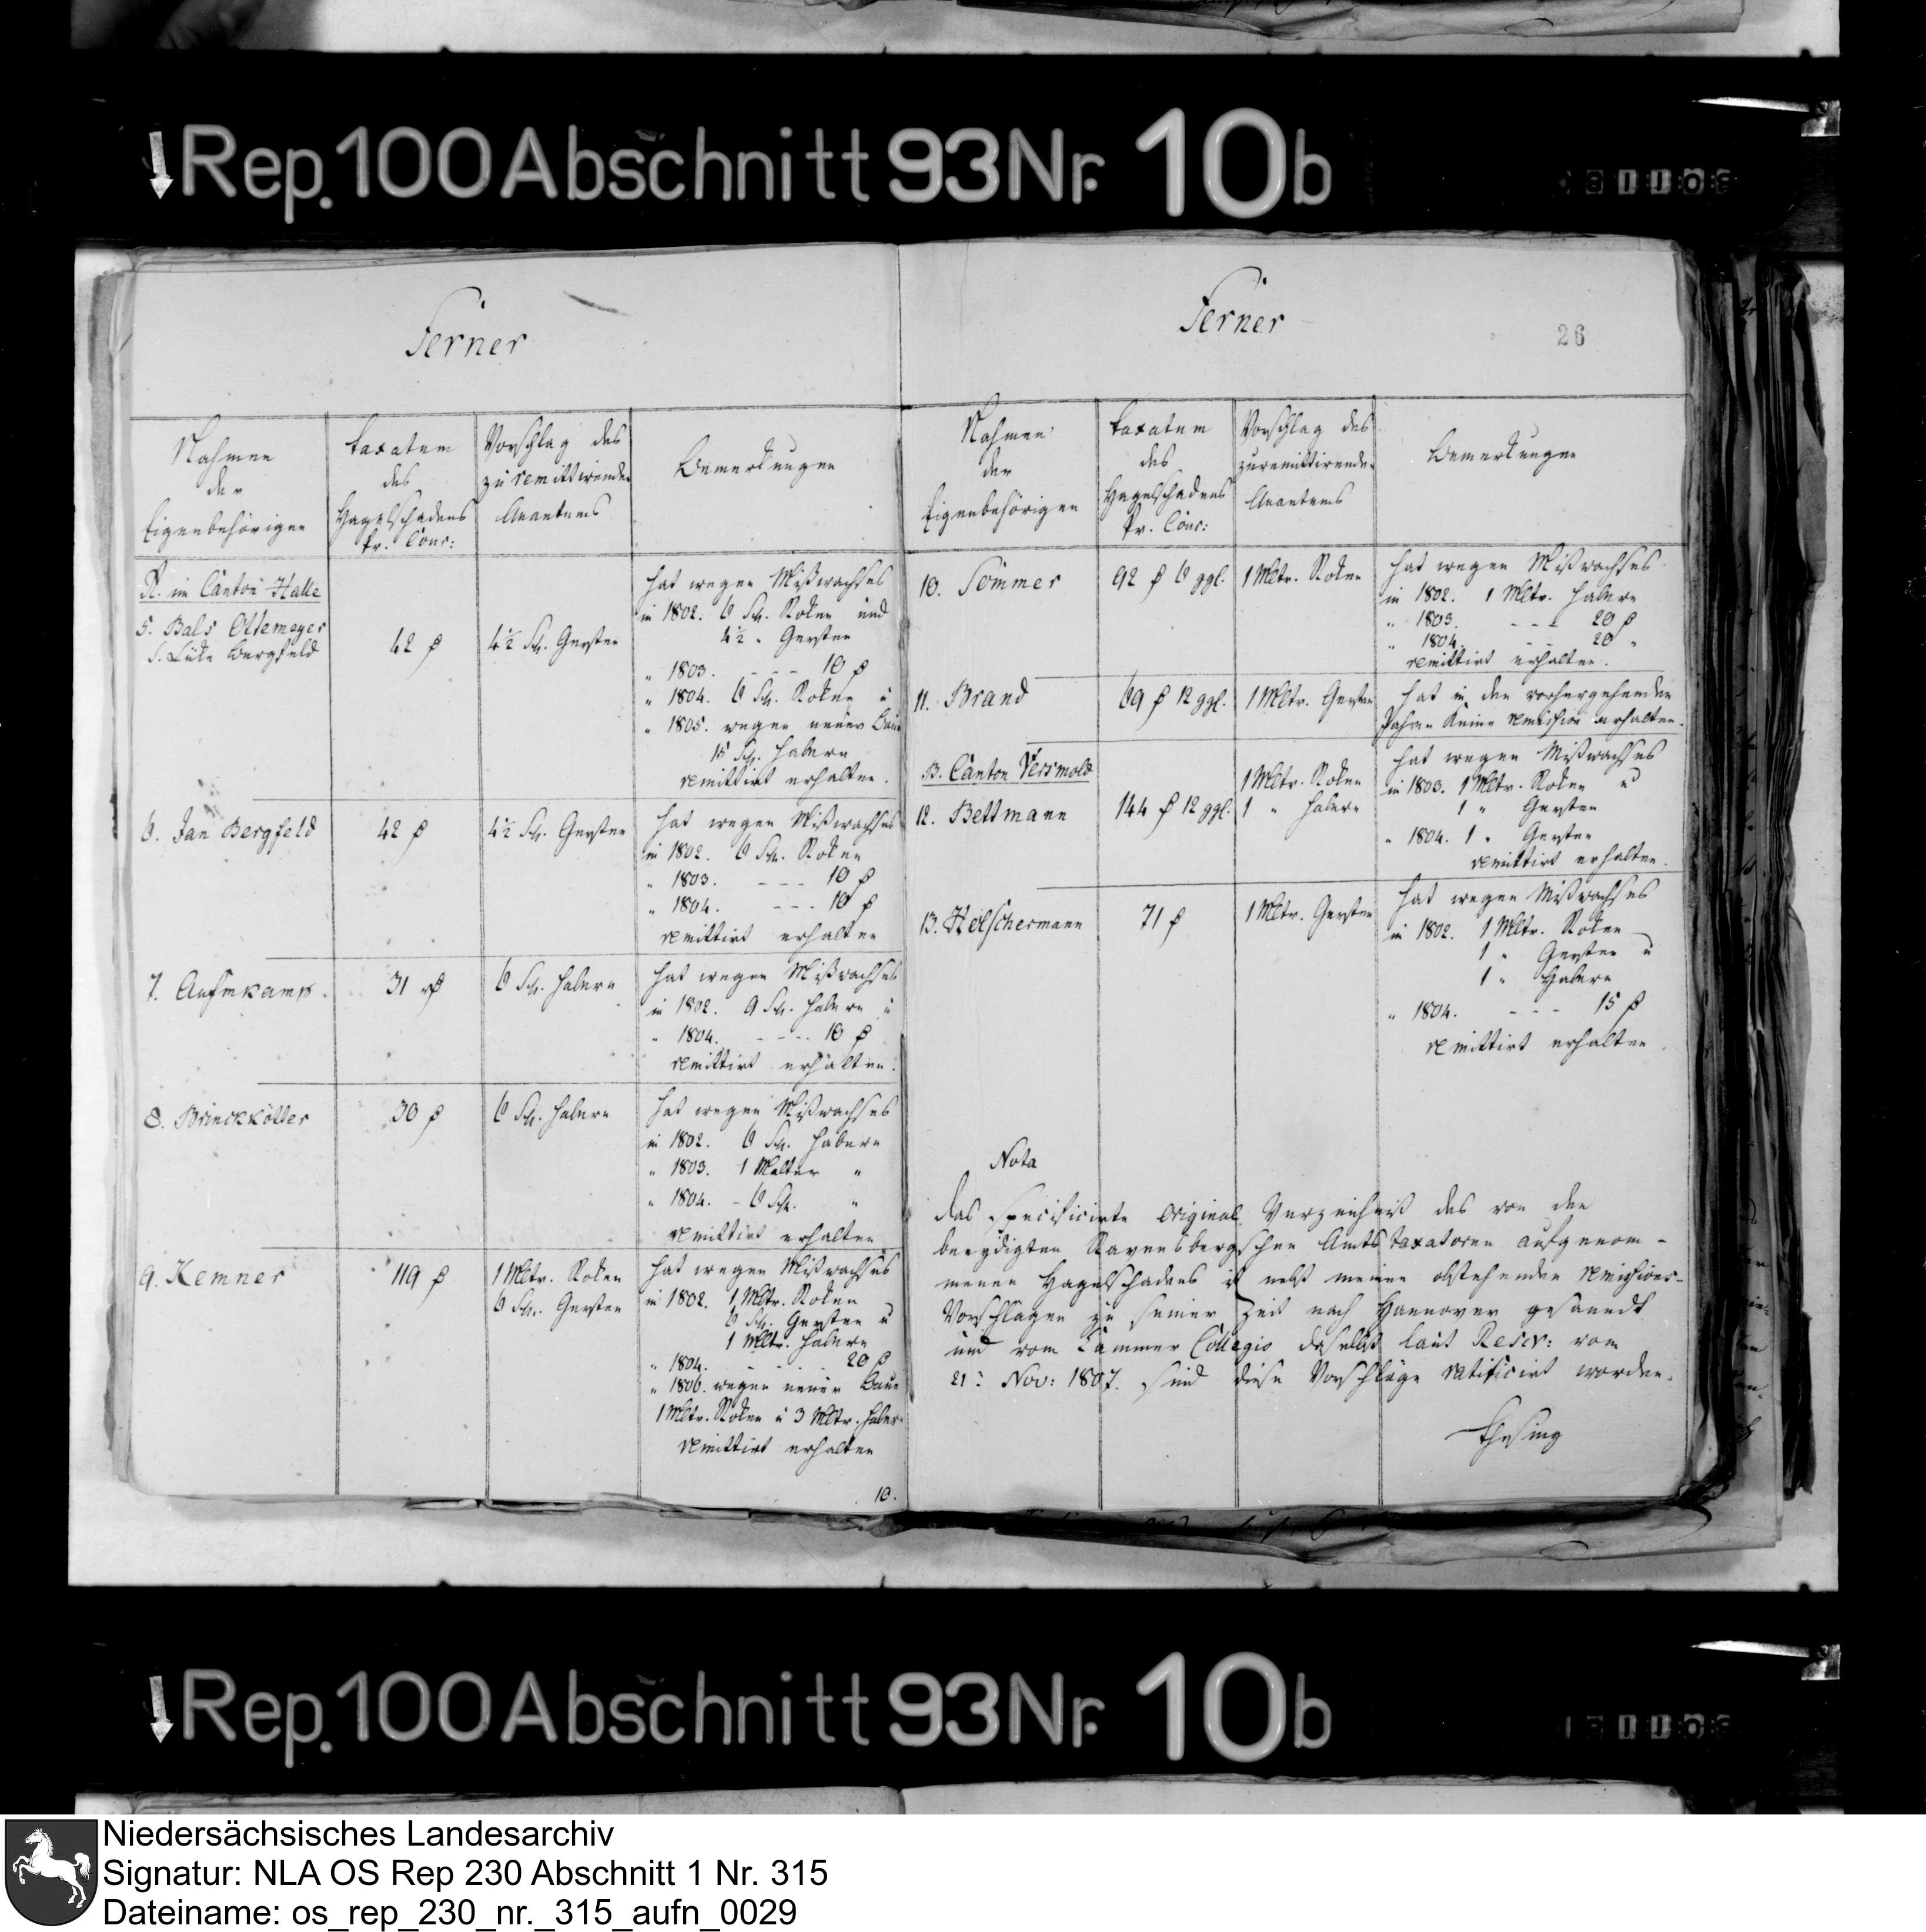 Rep. 100 Abschnitt 93 Nr. 10b
Ferner
Nahmen
der
Eigenbehörigen
Taxatum
des
Hagelschadens
pr. Cour:
Vorschlag des
zu remittirenden
Quantums
Bemerkungen
A. im Canton Halle
5. Bals Ottemeyer
s. Lüke Bergfeld
42 ₰
4½ Sch. Gersten
hat wegen Mißwachses
in 1802. 6 Sch. Roken und
4½ " Gersten
" 1803. - - - 10 ₰
" 1804. 6 Sch. Roken u
" 1805. wegen neuer Baue
15 Sch. Habern
remittirt erhalten.
6. Jan Bergfeld
42 ₰
4½ Sch. Gersten
hat wegen Mißwachses
in 1802. 6 Sch. Roken
" 1803. - - - 10 ₰
" 1804. - - - 10 ₰
remittirt erhalten
7. Aufmkamp.
31 ₰
6 Sch. Habern
hat wegen Mißwachses
in 1802. 9 Sch. Habern u
" 1804. - - - - 10 ₰
remittirt erhalten.
8. Brinckkötter
30 ₰
6 Sch. Habern
hat wegen Mißwachses
in 1802. 6 Sch. Habern
" 1803. 1 Malter "
" 1804. - 6 Sch. "
remittirt erhalten
9. Kemner
119 ₰
1 Mltr. Roken
6 Sch. Gersten
hat wegen Mißwachses
in 1802. 1 Mltr. Roken
6 Sch. Gersten u
1 Mltr. Habern
" 1804. - - - - 20 ₰
" 1806. wegen neuer Baue
1 Mltr. Roken u 3 Mltr. Haber
remittirt erhalten
10.
Ferner
26
Nahmen
der
Eigenbehörigen
Taxatum
des
Hagelschadens
pr. Cour:
Vorschlag des
zuremittirenden
Quantums
Bemerkungen
10. Sommer
92 ₰ 6 ggl.
1 Mltr. Roken
hat wegen Mißwachses
in 1802. 1 Mltr. Habern
" 1803. - - - 20 ₰
" 1804. - - 20 "
remittirt erhalten.
11. Brand
69 ₰ 12 ggl.
1 Mltr. Gersten
hat in den vorhergehenden
Jahren keine remission erhalten.
B. Canton Versmold
12. Bettmann
144 ₰ 12 ggl.
1 Mltr. Roken
1 " Habern
hat wegen Mißwachses
in 1803. 1 Mltr. Roken u
1 " Gersten
" 1804. 1 " Gersten
remittirt erhalten.
13. Hölschermann
71 ₰
1 Mltr. Gersten
hat wegen Mißwachses
in 1802. 1 Mltr. Roken
1 " Gersten u
1 " Habern
" 1804. - - - 15 ₰
remittirt erhalten.
Nota
das specificirte Original Verzeichniß des von den
beeydigten Ravensbergschen Amts taxatoren aufgenom-
menen Hagelschadens ist nebst meinen obstehenden remissions-
Vorschlagen zu seiner Zeit nach Hannover gesandt
und vom Cammer Collegio daselbst laut Rescr: vom
21: Nov: 1807. sind diese Vorschläge ratificirt worden.
Thesing
Rep. 100 Abschnitt 93 Nr. 10b
Niedersächsisches Landesarchiv
Signatur: NLA OS Rep 230 Abschnitt 1 Nr. 315
Dateiname: os_rep_230_nr._315_aufn_0029